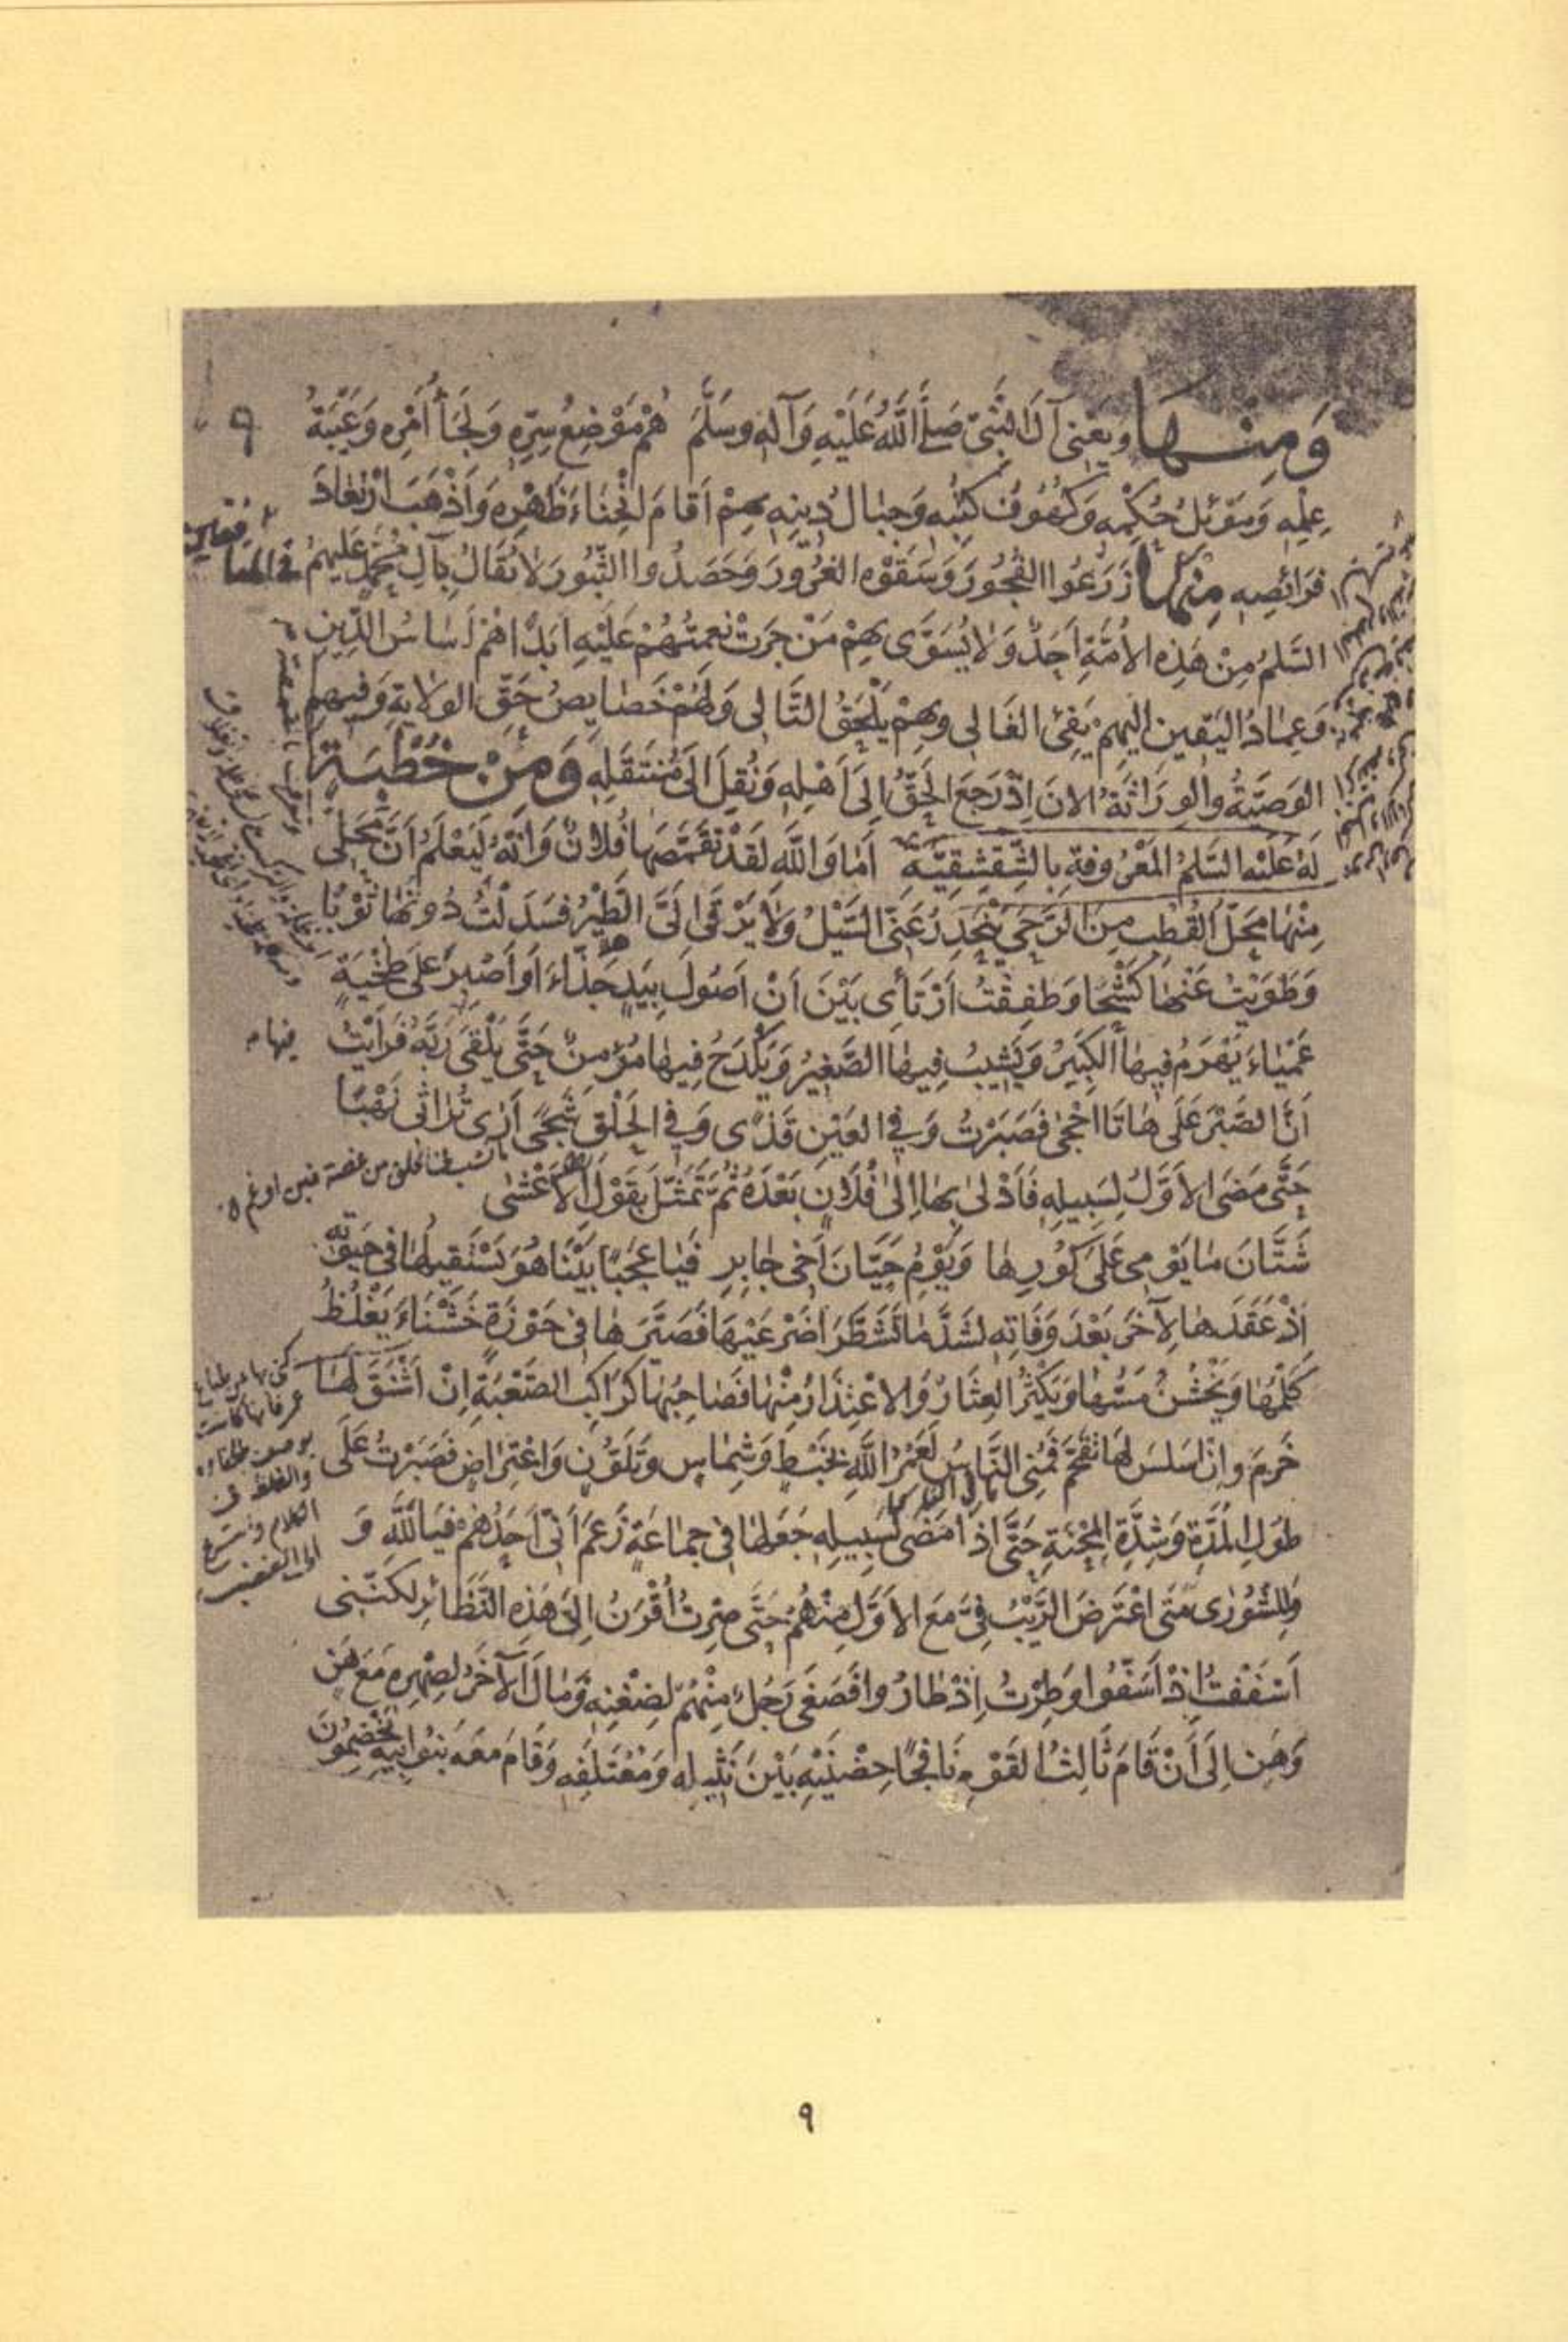 وَمِنْهَا وَيَعْنِى آلَ النَّبِىِّ صَلَّى اللَّهُ عَلَيْهِ وَآلِهِ وسَلَّمَ هُمْ مَوْضِعُ سِرِّهِ وَلَجَأُ أَمْرِهِ وَعَيْبَةُ
٩
عِلْمِهِ وَمَوْئِلُ حُكْمِهِ وَكُهُوفُ كُتُبِهِ وَجِبَالُ دِينِهِ بِهِمْ أَقَامَ انْحِنَاءَ ظَهْرِهِ وَأَذْهَبَ ارْتِعَادَ
فَرَائِصِهِ مِنْهَا زَرَعُوا الفُجُورَ وَسَقَوْهُ الغُرُورَ وَحَصَدُوا الثُّبُورَ لَا يُقَالُ بِآلِ مُحَمَّدٍ عَلَيْهِمُ
السَّلمُ مِنْ هَذِهِ الأُمَّةِ أَحَدٌ وَلَا يُسَوَّى بِهِمْ مَنْ جَرَتْ نِعْمَتُهُمْ عَلَيْهِ أَبَدًا هُمْ أَسَاسُ الدِّينِ
وَعِمَادُ اليَقِينِ إليهِمْ يَفِئُ الغَالِى وبِهِمْ يَلْحَقُ التَّالِى وَلَهُمْ خَصَايِصُ حَقِّ الوِلَايَةِ وَفِيهِمُ
الوَصِيَّةُ والوِرَاثَةُ الآنَ إِذْ رَجَعَ الحَقُّ إِلَى أَهْلِهِ وَنُقِلَ إِلَى مُنْتَقَلِهِ وَمِنْ خُطْبَةٍ
لَهُ عَلَيْهِ السَّلمُ المَعْرُوفَةِ بِالشِّقْشِقِيَّةِ أَمَا وَاللَّهِ لَقَدْ تَقَمَّصَهَا فُلَانٌ وَإِنَّهُ لَيَعْلَمُ أَنَّ مَحَلِّى
مِنْهَا مَحَلُّ القُطْبِ مِنَ الرَّحَى يَنْحَدِرُ عَنِّى السَّيْلُ وَلَا يَرْقَى إِلَىَّ الطَّيْرُ فَسَدَلْتُ دُونَهَا ثَوْبًا
وَطَوَيْتُ عَنْهَا كَشْحًا وَطَفِقْتُ أَرْتَأِى بَيْنَ أَنْ أَصُولَ بِيَدٍ جَذَّاءَ أَوْ أَصْبِرَ عَلَى طَخْيَةٍ
عَمْيَاءَ يَهْرَمُ فِيهَا الكَبِيرُ وَيَشِيبُ فِيهَا الصَّغِيرُ وَيَكْدَحُ فِيهَا مُؤْمِنٌ حَتَّى يَلْقَى رَبَّهُ فَرَأَيْتُ
فيها
أَنَّ الصَّبْرَ عَلَى هَاتَا أَحْجَى فَصَبَرْتُ وَفِى العَيْنِ قَذًى وَفِى الحَلْقِ شَجًى أَرَى تُرَاثِى نَهْبًا
حَتَّى مَضَى الأَوَّلُ لِسَبِيلِهِ فَأَدْلَى بِهَا إِلَى فُلَانٍ بَعْدَهُ ثُمَّ تَمَثَّلَ بِقَوْلِ الأَعْشَى
شَتَّانَ مَا يَوْمِى عَلَى كُورِهَا وَيَوْمُ حَيَّانَ أَخِى جَابِرِ فَيَا عَجَبًا بَيْنَا هُوَ يَسْتَقِيلُهَا فِى حَيَوتِهِ
إِذْ عَقَدَهَا لِآخَرَ بَعْدَ وَفَاتِهِ لَشَدَّ مَا تَشَطَّرَا ضَرْعَيْهَا فَصَيَّرَهَا فِى حَوْزَةٍ خَشْنَاءَ يَغْلُظُ
كَلْمُهَا وَيَخْشُنُ مَسُّهَا وَيَكْثُرُ العِثَارُ وَالاعْتِذَارُ مِنْهَا فَصَاحِبُهَا كَرَاكِبِ الصَّعْبَةِ إِنْ أَشْنَقَ لَهَا
خَرَمَ وإِنْ أَسْلَسَ لَهَا تَقَحَّمَ فَمُنِىَ النَّاسُ لَعَمْرُ اللَّهِ بِخَبْطٍ وَشِمَاسٍ وَتَلَوُّنٍ وَاعْتِرَاضٍ فَصَبَرْتُ عَلَى
طُولِ المُدَّةِ وَشِدَّةِ المِحْنَةِ حَتَّى إِذَا مَضَى لِسَبِيلِهِ جَعَلَهَا فِى جَمَاعَةٍ زَعَمَ أَنِّى أَحَدُهُمْ فَيَا لَلَّهِ وَ
وَلِلشُّورَى مَتَى اعْتَرَضَ الرَّيْبُ فِىَّ مَعَ الأَوَّلِ مِنْهُمْ حَتَّى صِرْتُ أُقْرَنُ إِلَى هَذِهِ النَّظَائِرِ لكنَّنِى
أَسْفَفْتُ إِذْ أَسَفُّوا وَطِرْتُ إِذْ طَارُوا فَصَغَى رَجُلٌ مِنْهُمْ لِضِغْنِهِ وَمَالَ الآخَرُ لِصِهْرِهِ مَعَ هَنٍ
وَهَنٍ إِلَى أَنْ قَامَ ثَالِثُ القَوْمِ نَافِجًا حِضْنَيْهِ بَيْنَ نَثِيلِهِ وَمُعْتَلَفِهِ وَقَامَ مَعَهُ بَنُو أَبِيهِ يَخْضِمُونَ
٩